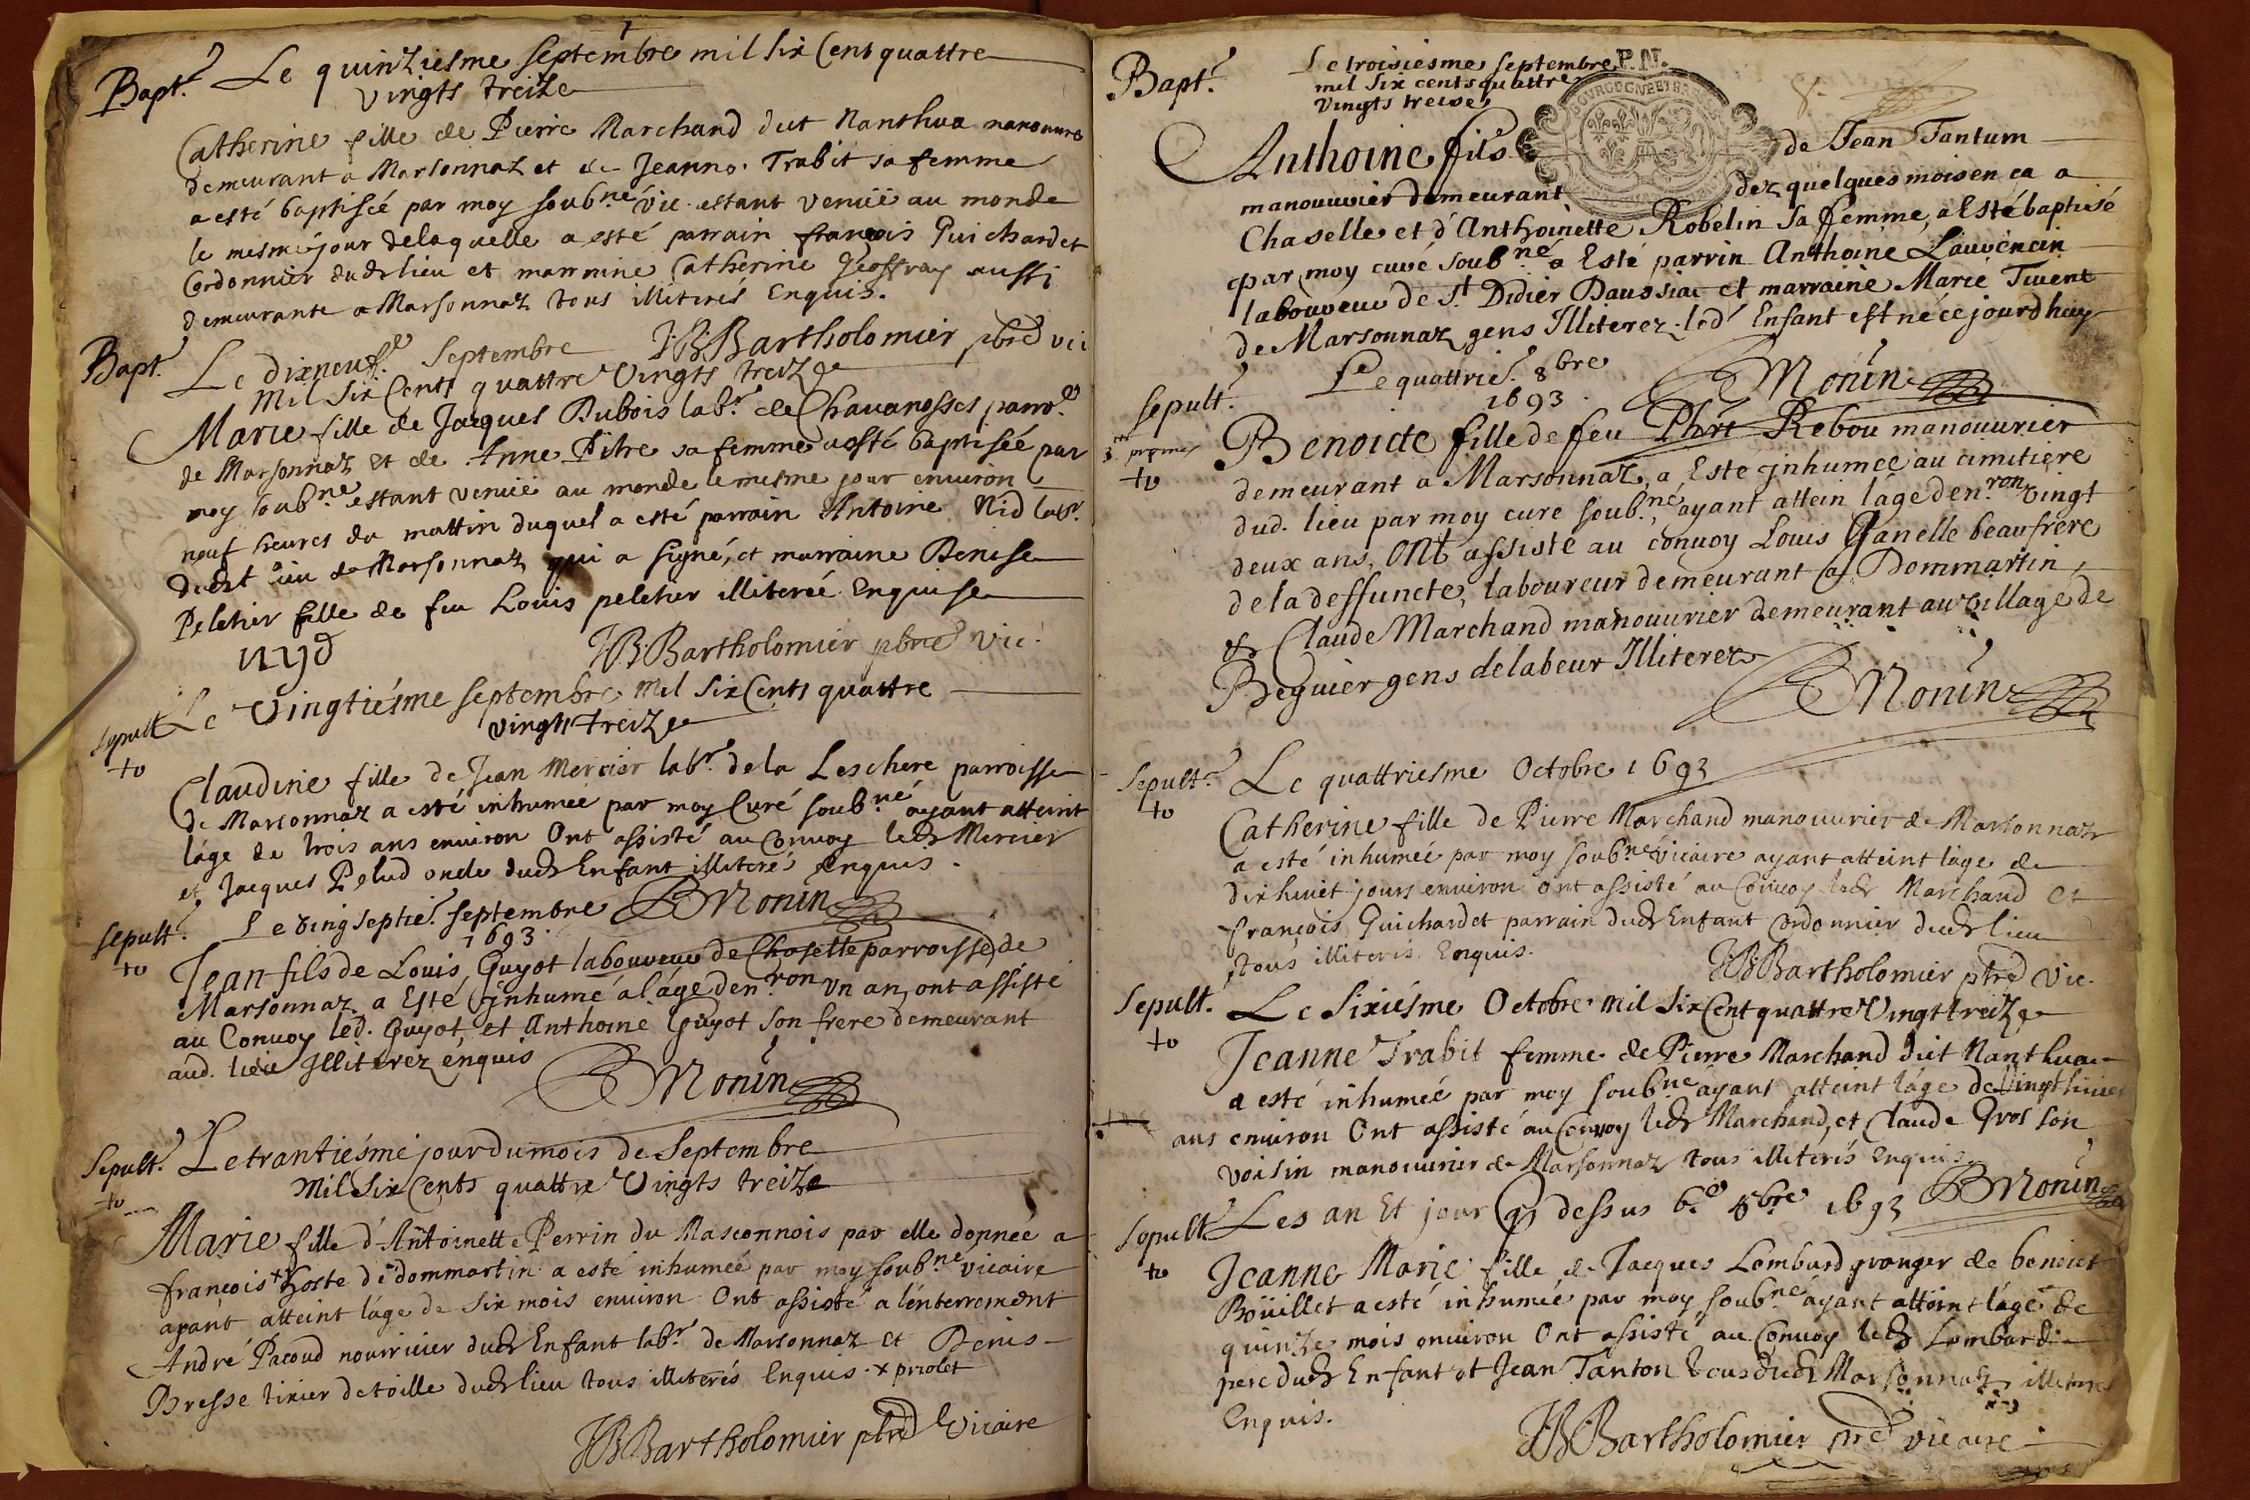 Bapt.e Le quinziesme septembre mil six Cent quattre
vingts treize
Catherine fille de Pierre Marchand dit Nanthua manouvrier
demeurant a Marsonnaz et de Jeanne Trabit sa femme
a esté baptiseé par moy soub.né vic. estant venüe au monde
le mesme jour de laquelle a esté parrain françois Guichardet
Cordonnier dud lieu et marraine Catherine Geoffray aussi
demeurante a Marsonnaz tous illiterés Enquis.
JBBartholomier pbre vic
Bapt. Le dixneuf.e Septembre
Mil Six Cents quattre Vingts treize
Marie fille de Jacques Dubois lab.r de Chavanosses parro.e
de Marsonnaz et de Anne Pitre sa femme a esté baptiseé par
moy soub.né estant venüe au monde le mesme jour environ
neuf heures du mattin duquel a esté parrain Antoine Nid lab.r
dudt lieu de Marsonnaz qui a signé, et marraine Denise
Peletier fille de feu Louis peletier illitereé Enquise
nyd JBBartholomier pbre vic.
Sepult.
+o
Le Vingtiésme septembre mil six Cents quattre
vingts treize
Claudine fille de Jean Mercier lab.r de la Leschere parroisse
de Marsonnaz a esté inhumeé par moy Curé soub.né ayant atteint
láge de trois ans environ Ont assisté au Convoy led Mercier
et Jacques Pelud oncle dud Enfant illiterés Enquis.
BMonin
Sepult.e
+o
Le vingseptie.e septembre
1693.
Jean fils de Louis Guyot laboureur de Choselle parroisse de
Marsonnaz a Esté jnhumé a láge den.ron vn an, ont assisté
au Convoy led. Guyot, et Anthoine Guyot son frere demeurant
aud. lieu Jlliterez enquis
BMonin
Sepult.e
+o
Le trantiésme jour du mois de Septembre
Mil Six Cents quattre Vingts treize
Marie fille d'Antoinette Perrin du Masconnois par elle donneé a
françois + hoste de dommartin a esté inhumeé par moy soub.né vicaire
ayant atteint láge de six mois environ Ont assisté a lénterrement
André Pacoud nourricier dud Enfant lab.r de Marsonnaz et Denis
Bresse tixier de toille dud lieu tous illiterés Enquis. x priolet
JBBartholomier pbre Vicaire
Bapt.e
Le troisiesme septembre
mil six cents quattre
vingts treise
P.N.
Anthoine fils de Jean Tantum
manouvrier demeurant dez quelques mois en ca a
Chaselle et d'Anthoinette Robelin sa femme, a Esté baptisé
par moy curé soub.né a Esté parrin Anthoine Lauvencin
laboureur de S.t Didier Daussiac et marraine Marie Tivent
de Marsonnaz gens Jlliterez. led. Enfant est né ce jourdhuy
BMonin
Sepult.e
+o
Le quattrie.e 8bre
1693.
Benoicte fille de feu Phi͂rt Rebou manouvrier
demeurant a Marsonnaz, a Este jnhumeé au cimitiere
dud. lieu par moy curé soub.né, ayant attein láge den.ron vingt
deux ans, Ont assisté au convoy Louis Ganelle beaufrere
de la deffuncte, laboureur demeurant a Dommartin,
et Claude Marchand manouvrier demeurant au village de
Beguier gens de labeur Jlliterez
BMonin
Sepult.e
+o
Le quattriesme Octobre 1693
Catherine fille de Pierre Marchand manouvrier de Marsonnaz
a esté inhumeé par moy soub.né vicaire ayant atteint láge de
dixhuict jours environ Ont assisté au Convoy led Marchand et
françois Guichardet parrain dud Enfant Cordonnier dud lieu
tous illiteris Enquis.
JBBartholomier pbre Vic.
Sepult.
+o
Le Sixiésme Octobre mil Six Cent quattre Vingt treize
Jeanne Trabit femme de Pierre Marchand dit Nanthua
a esté inhumeé par moy soub.né ayant atteint láge de Vingthuict
ans environ Ont assisté au Convoy led Marchand, et Claude Gros son
voisin manouvrier de Marsonnaz tous illiterés Enquis
BMonin
Sepult
+o
Les an Et jour Cy dessus 6.e 8bre 1693
Jeanne Marie fille de Jacques Lombard granger de benoict
Boüillet a esté inhumeé par moy soub.né ayant atteint láge de
quinze mois environ Ont assisté au Convoy led Lombard
pere dud Enfant et Jean Tanton tous dud Marsonnaz illiterés
Enquis.
JBBartholomier pbre vicaire